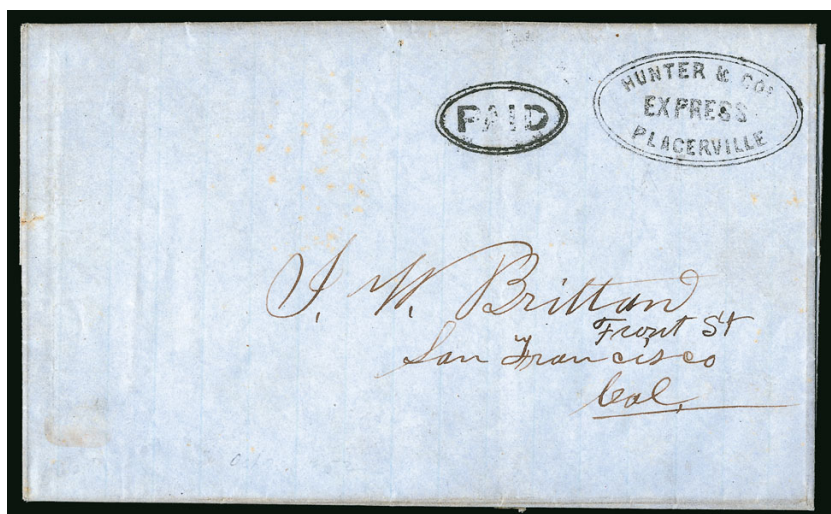 PAID
HUNTER & COS
EXPRESS
PLACERVILLE
J. W. Brittan
Front St
San Francisco
Cal.